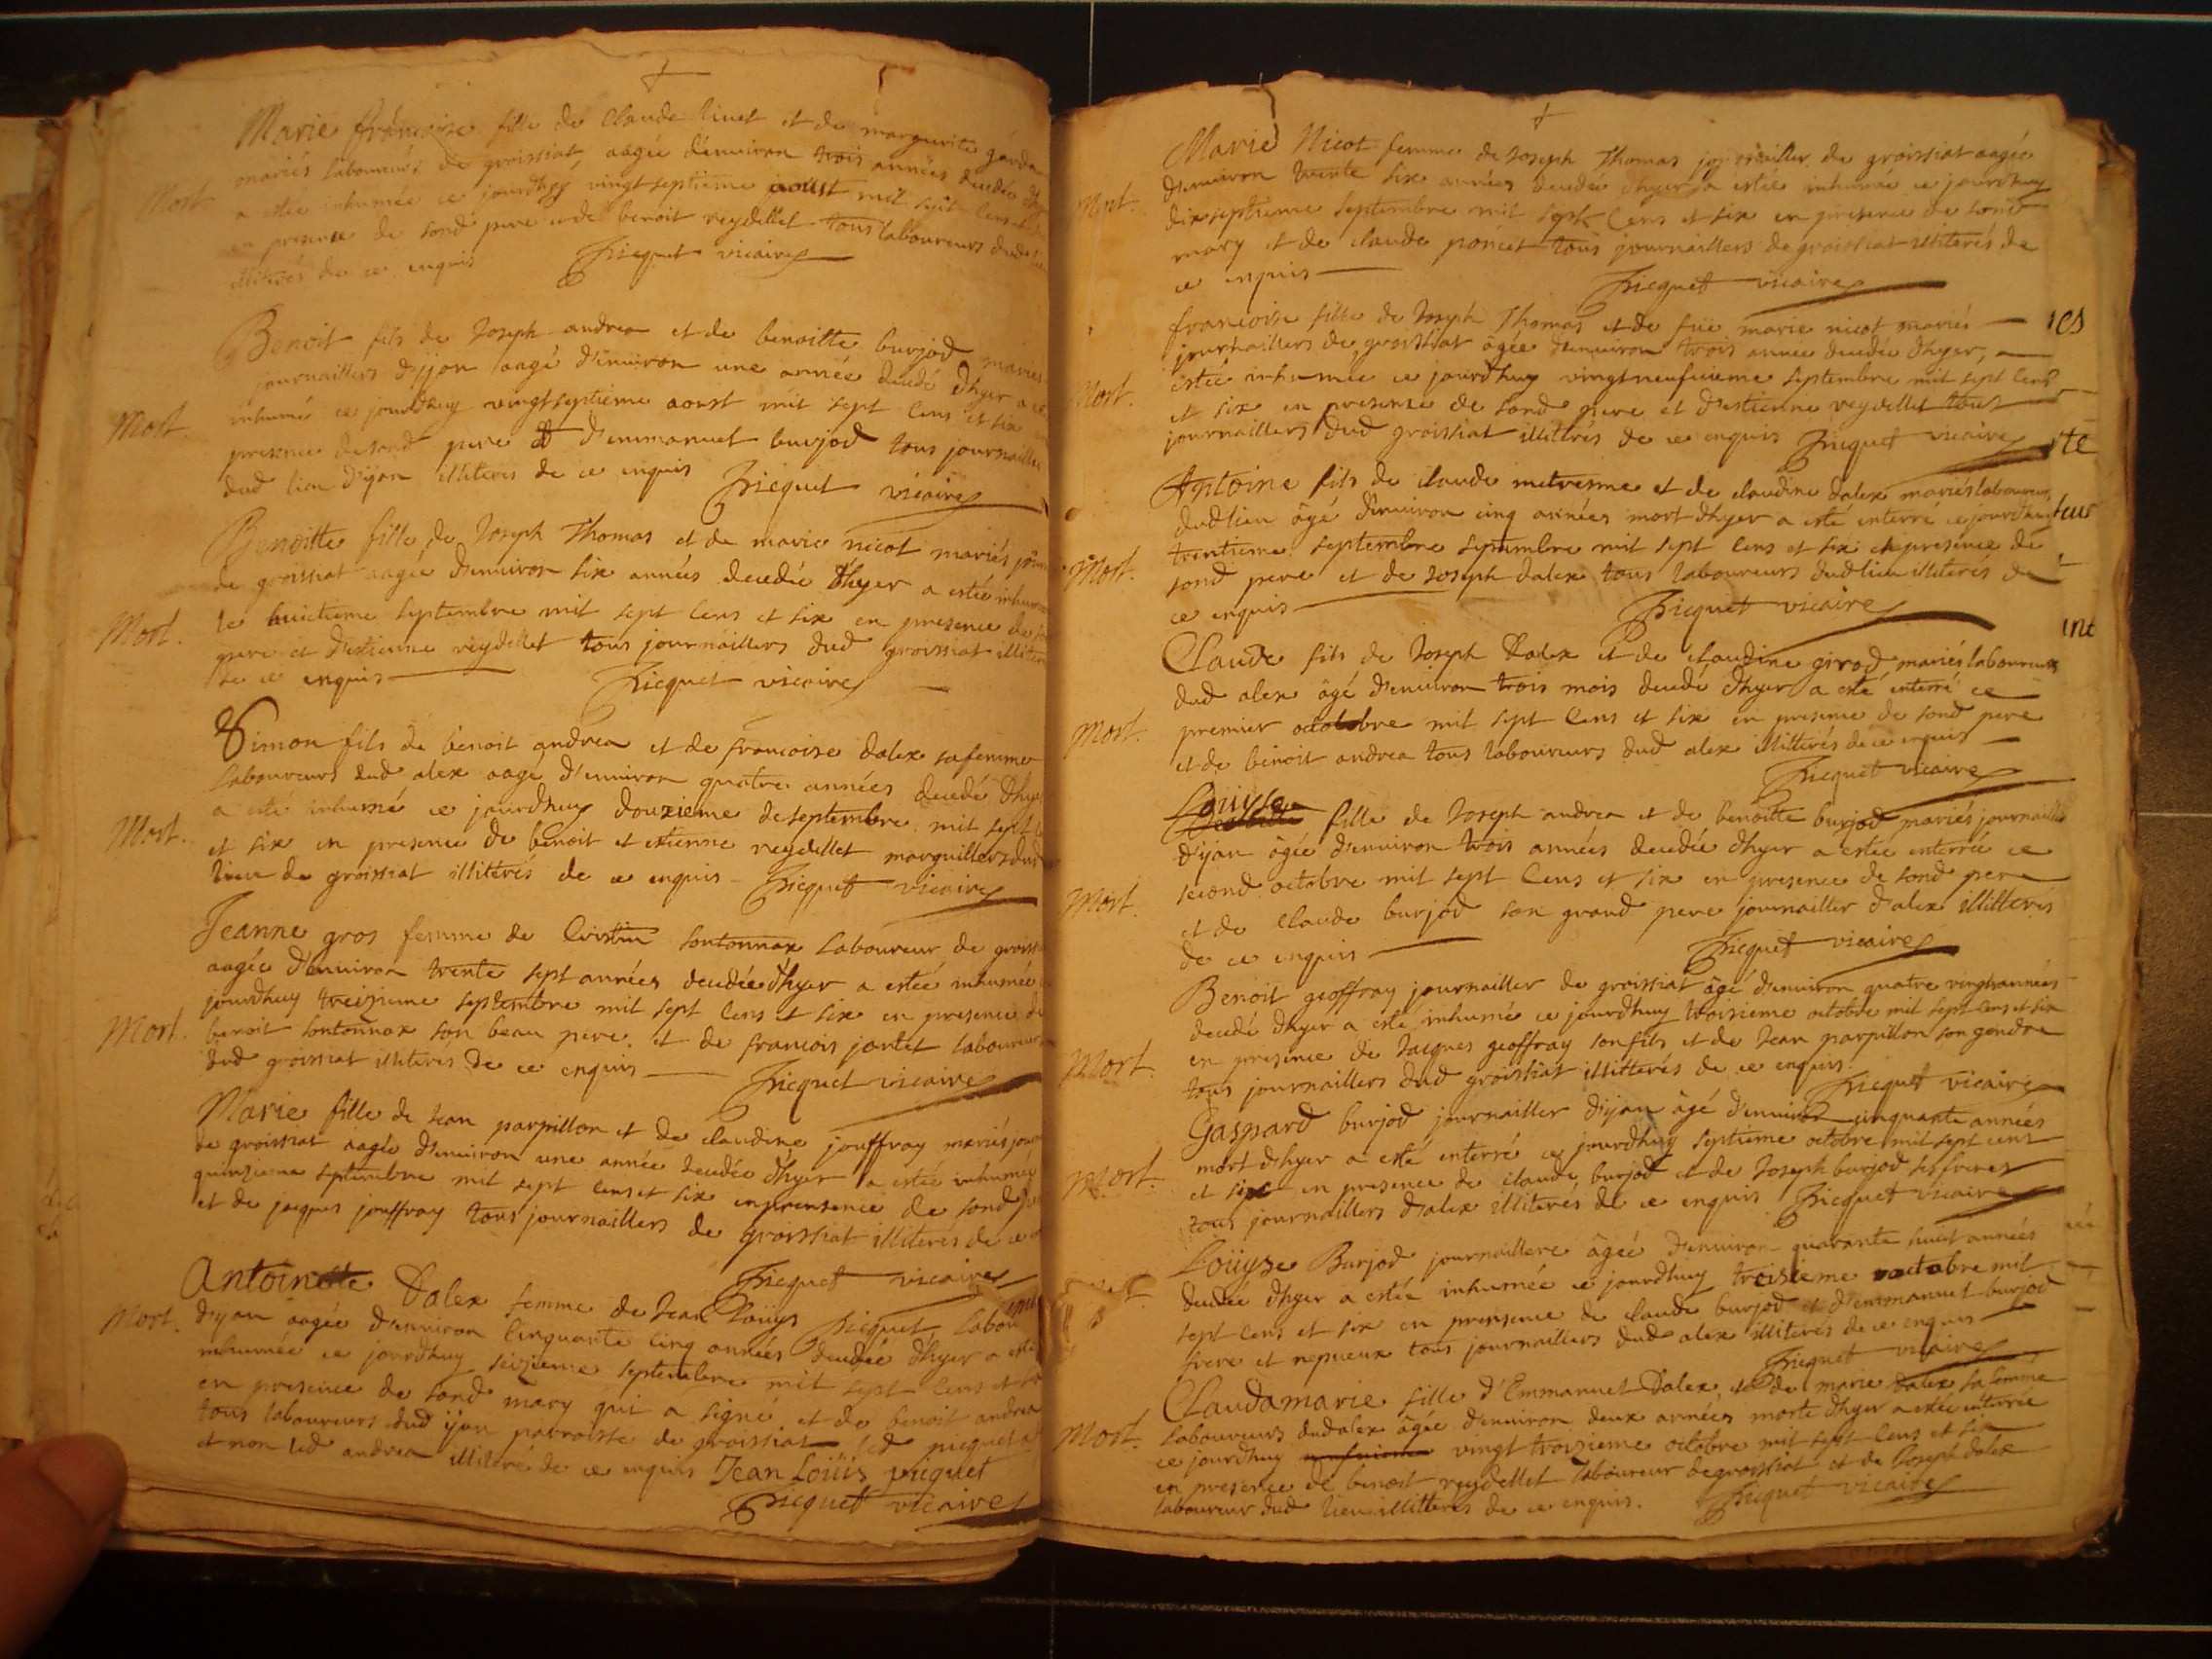 Marie françoise fille de Claude Vinet et de marguerite
mariés laboureurs de groissiat, aagée d'environ trois années decedée
Mort a estée inhumée ce jourdhuy vingtseptieme aoust mil sept cens
en presence de sond pere et de benoit reydellet tous laboureurs dud
illiterés de ce enquis Jricquet vicaire
Benoit fils de Joseph andrea et de benoitte burjod mariés
journailliers d'ijon aagé d'environ une année decedé dhyer a
Mort. inhumé ce jourdhuy vingtseptieme aoust mil sept cens et six
presence de sond pere et d'emmanuel burjod tous journaillier
dud lieu d'ijon illiteres de ce enquis Jricquet vicaire
Benoitte fille de Joseph Thomas et de marie nicot mariés
de groissiat aagée d'environ six années decedée dhyer a estée
Mort. le huictieme septembre mil sept cens et six en presence de
pere et d'estienne reydellet tous journailliers dud groissiat
de ce enquis Jricquet vicaire
Simon fils de benoit andrea et de françoise dalex sa femme
laboureurs dud alex aagé d'environ quatre années decedé
Mort. a esté inhumé ce jourdhuy douzieme de septembre mil sept
et six en presence de benoit et estienne reydellet marguilliers dud
lieu de groissiat illiterés de ce enquis Jricquet vicaire
Jeanne gros femme de Cristin sontonnax laboureur de
aagée d'environ trente sept années decedée dhyer a estée inhumée
jourdhuy treizieme septembre mil sept cens et six en presence de
Mort. benoit sontonnax son beau pere et de francois jantet laboureurs
dud groissiat illiteres de ce enquis Jricquet vicaire
Marie fille de Jean parpillon et de claudine jouffray mariés
de groissiat aagée d'environ une année decedée dhyer a estée inhumée
quinzieme septembre mil sept cens et six en presence de sond
et de jacques jouffray tous journailliers de groissiat illiteres de ce
Jricquet vicaire
Antoinette Dalex femme de Jean Loüys picquet
Mort. d'ijon aagée d'environ cinquante cinq années decedée dhyer a esté
inhumée ce jourdhuy seizieme septembre mil sept cens et
en presence de sond mary qui a signé et de benoit andrea
tous laboureurs dud ijon parroisse de groissiat led picquet
et non led andrea illiteré de ce enquis Jean Loüis picquet
Jricquet vicaire
Marie Nicot femme de Joseph Thomas journaillier de groissiat aagée
Mort. d'environ trente six années decedée dhyer a estée inhumée ce jourdhuy
dixseptieme septembre mil sept cens et six en presence de sond
mary et de claude poncet tous journailliers de groissiat illiterés de
ce enquis Jricquet vicaire
françoise fille de Joseph Thomas et de füe marie nicot mariés
journailliers de groissiat âgée d'environ trois année decedée dhyer, a
Mort. estée inhumée ce jourdhuy vingtneufvieme septembre mil sept cens
et six en presence de sond pere et d'estienne reydellet tous
journailliers dud groissiat illitérés de ce enquis Jricquet vicaire
Antoine fils de claude metresme et de claudine dalex mariés laboureurs
dud lieu âgé d'environ cinq années mort dhyer a esté enterré ce jourdhuy
Mort. trentieme septembre septembre mil sept cens et six en presence de
sond pere et de Joseph dalex tous laboureurs dud lieu illiteres de
ce enquis Jricquet vicaire
Claude fils de Joseph Dalex et de claudine girod mariés laboureurs
dud alex âgé d'environ trois mois decedé dhyer a esté enterré ce
Mort. premier octobre mil sept cens et six en presence de sond pere
et de benoit andrea tous laboureurs dud alex illitterés de ce enquis
Jricquet vicaire
Loüyse fille de Joseph andrea et de benoitte burjod mariés journailliers
d'ijan âgée d'environ trois années decedée dhyer a estée enterrée ce
Mort. second octobre mil sept cens et six en presence de sond pere
et de claude burjod son grand pere journaillier d'alex illitterés
de ce enquis Jricquet vicaire
Benoit geoffray journaillier de groissiat âgé d'environ quatre vingts années
decedé dhyer a esté inhumé ce jourdhuy troisieme octobre mil sept cens et six
Mort. en presence de Jacques geoffray son fils et de Jean parpillon son gendre
tous journailliers dud groissiat illitterés de ce enquis.
Jricquet vicaire
Gaspard burjod journaillier d'ijan âgé d'environ cinquante années
mort dhyer a esté enterré ce jourdhuy septieme octobre mil sept cens
Mort. et six en presence de claude burjod et de Joseph burjod ses freres
tous journailliers d'alex illiteres de ce enquis Jricquet vicaire
Loüyse Burjod journailliere âgée d'environ quarante huit années
decedée dhyer a estée inhumée ce jourdhuy troisieme octobre mil
sept cens et six en presence de claude burjod et d'emmanuel burjod
frere et nepveux tous journailliers dud alex illiteres de ce enquis
Jricquet vicaire
Claudamarie fille d'Emmanuel Dalex et de marie dalex sa femme
Mort. laboureurs dud alex âgée d'environ deux années morte dhyer a estée enterrée
ce jourdhuy vingt troizieme octobre mil sept cens et six
en presence de benoit reydellet laboureur de groissiat et de Joseph dalex
laboureur dud lieu illitteres de ce enquis. Jricquet vicaire